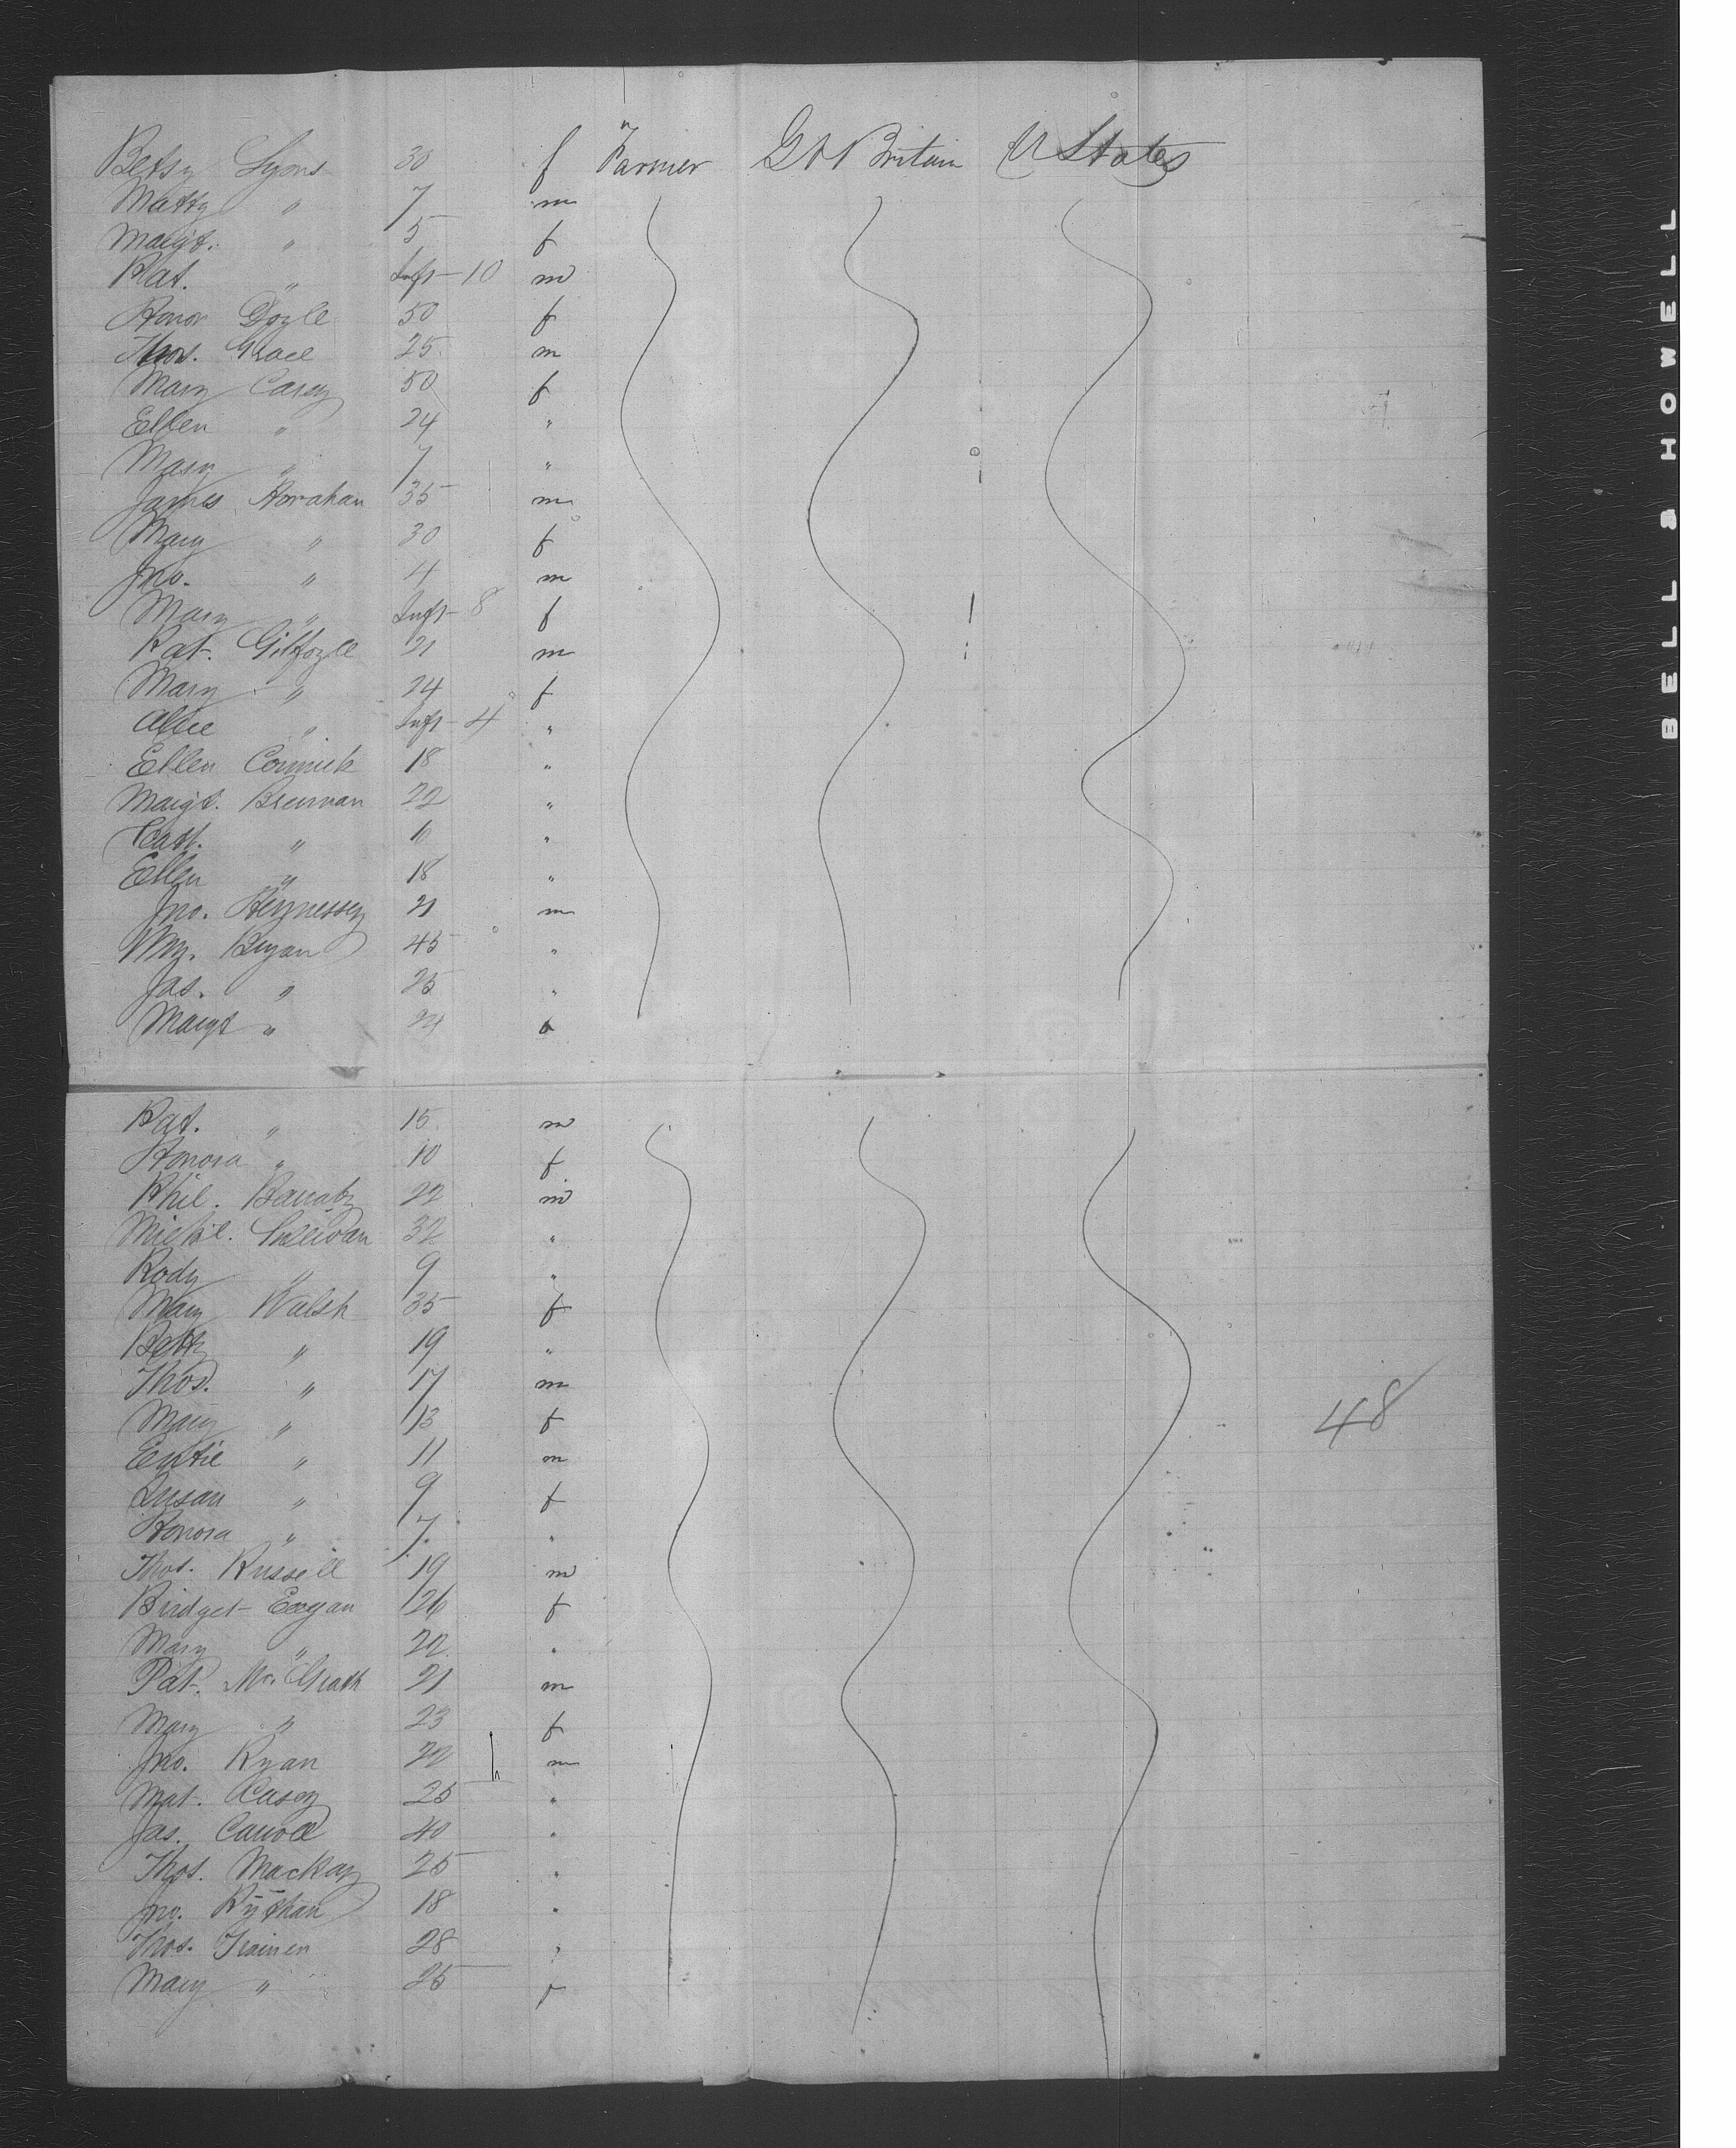 Betsy Lyons 30 f Farmer Gt Britain U States
Matty " 7 m
Margt. " 5 f
Pat. " Inft - 10 m
Honor Doyle 50 f
Thos. Grace 25 m
Mary Casey 50 f
Ellen " 24 "
Mary " 7 "
James Horahan 35 m
Mary " 30 f
Jno. " 4 m
Mary " Inft - 8 f
Pat. Gilfoyle 21 m
Mary " 24 f
Alice " Inft - 4 "
Ellen Cormick 18 "
Margt. Brennan 22 "
Cath. " "
Ellen " 18 "
Jno. Hennessey 21 m
Wm. Bryan 45 "
Jas. " 25 "
Margt " 24 f
Pat. " 15 m
Honora " 10 f
Phil. 22 m
Michl. Sullivan 32 "
Rody " 9 "
Mary Walsh 35 f
Betty " 19 "
Thos. " 17 m
Mary " 13 f
48
" 11 m
Susan " 9 f
Honora " 7 "
Thos. Russell 19 m
Bridget Eagan 26 f
Mary " 22 "
Pat. McGrath 21 m
Mary " 23 f
Jno. Ryan 22 m
Mat. Casey 25 "
Jas. Carroll 40 "
Thos. Mackay 25 "
Jno. 18 "
Thos. Trainer 28 "
Mary " 25 f
BELL & HOWELL